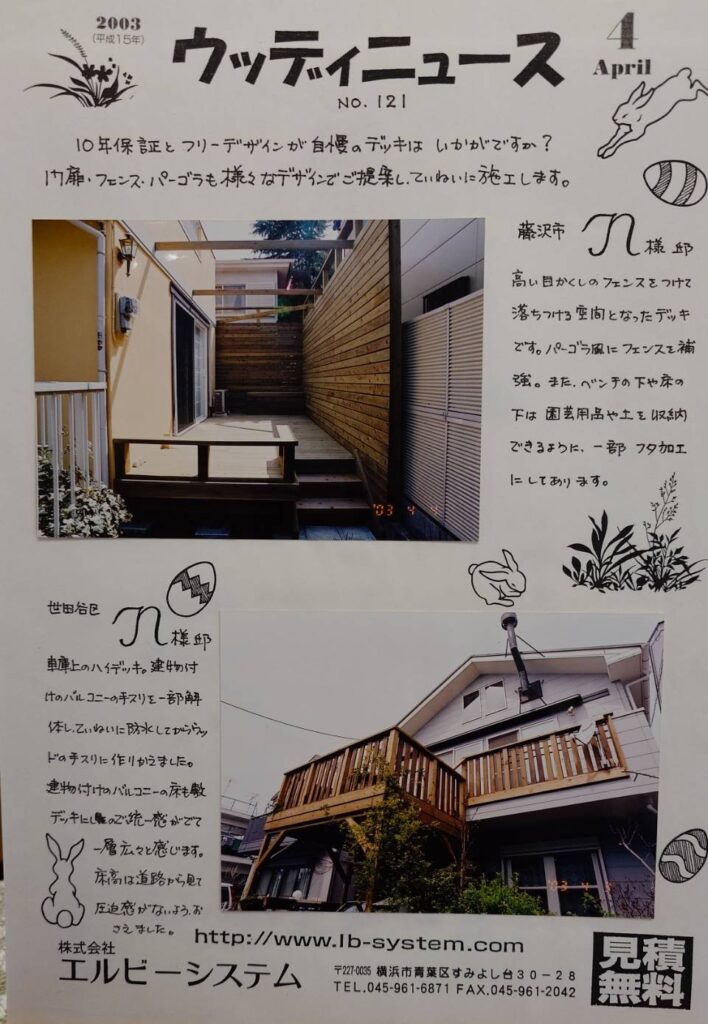 2003
(平成15年)
ウッディニュース
NO. 121
4
April
10年保証とフリーデザインが自慢のデッキは いかがですか?
門扉・フェンス・パーゴラも様々なデザインでご提案し、ていねいに施工します。
藤沢市 N様邸
高い目かくしのフェンスをつけて
落ちつける空間となったデッキ
です。パーゴラ風にフェンスを補
強。また、ベンチの下や床の
下は園芸用品や土を収納
できるように、一部フタ加工
にしてあります。
'03 4 4
世田谷区 N様邸
車庫上のハイデッキ。建物付
けのバルコニーの手スリを一部解
体し、ていねいに防水してからウッ
ドの手スリに作りかえました。
建物付けのバルコニーの床も敷
デッキにしたので統一感がでて
一層広々と感じます。
床高は道路から見て
圧迫感がないよう、お
さえました。
'03 4 5
http://www.lb-system.com
株式会社
エルビーシステム
〒227-0035 横浜市青葉区すみよし台30-28
TEL.045-961-6871 FAX.045-961-2042
見積
無料